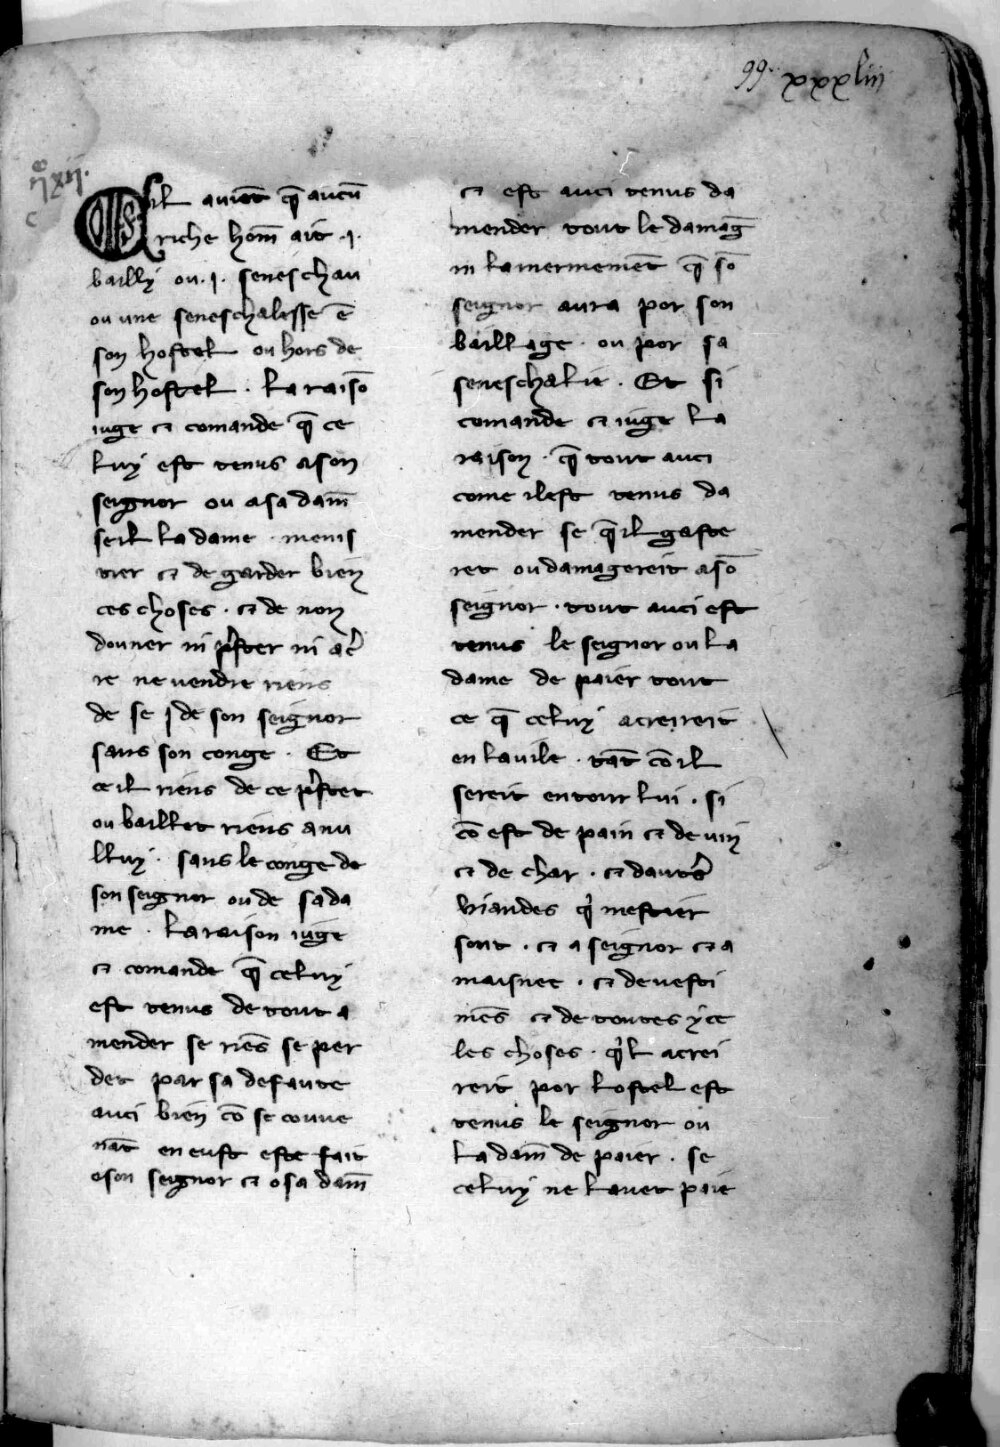 99. xxxliii
c̄ xii.
c
Sil avient q̄ aucū
riche hom̄ ait .i.
bailly ou .i. seneschau
ou une seneschalesse ē
son hostel ou hors de
son hostel . la raisō
iuge ⁊ comande q̄ ce
luy est tenus ason
seignor ou asa dam̄
seil la dame . menis
trer ⁊ de garder bien
ces choses . ⁊ de non
douner ni p̄ster ni ac̄
re ne vendre riens
de se ide son seignor
sans son conge . Et
ceil riens de ce p̄stet
ou baillet riens a nu
lluy . sans le conge de
son seignor ou de sa da
me . la raison iuge
⁊ comande q̄ celuy
est tenus de tout a
mender se riēs se per
det par sa defaute
auci bien cō se couve
nāt en eust este fait
o son seignor ⁊ o sa dam̄
⁊ est auci tenus da
mender tout le damaḡ
in lamermemēt q̄ sō
seignor aura por son
baillage . ou por sa
seneschalie . Et si
comande ⁊ iuge la
raison . q̄ tout auci
come il est tenus da
mender se q̄ il gaste
ret ou damagereit a sō
seignor . tout auci est
tenus le seignor ou la
dame de paier tout
ce q̄ celuy acreireit
en la vile . tāt cō il
sereit entour lui . si
cō est de pain ⁊ de vin
⁊ de char . ⁊ dautꝭs
viandes q̇ mestier
sont . ⁊ a seignor ⁊ a
maisnee . ⁊ de vesti
mēs ⁊ de toutes yce
les choses . q̇l acrei
reit por lostel est
tenus le seignor ou
la dam̄ de paier . se
celuy ne lavet paie